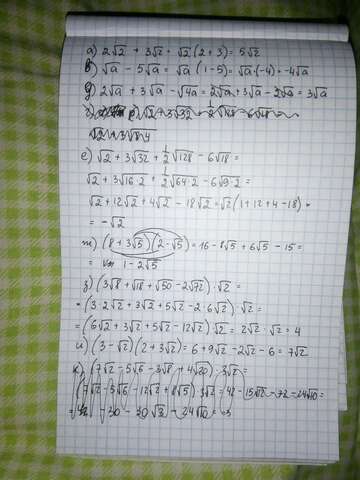 а) 2√2 + 3√2 = √2 (2+3) = 5√2
в) √a - 5√a = √a (1-5) = √a·(-4) = -4√a
д) 2√a + 3√a - √4a = 2√a + 3√a - 2√a = 3√a
е) √2 + 3√32 + 1/2√128 - 6√18 =
√2 + 3√16·2 + 1/2√64·2 - 6√9·2 =
√2 + 12√2 + 4√2 - 18√2 = √2(1+12+4-18) =
= -√2
ж) (8 + 3√5)(2-√5) = 16 - 8√5 + 6√5 - 15 =
= 1-2√5
з) (3√8 + √18 + √50 - 2√72) · √2 =
= (3·2√2 + 3√2 + 5√2 - 2·6√2) · √2 =
= (6√2 + 3√2 + 5√2 - 12√2) √2 = 2√2 · √2 = 4
и) (3 - √2)(2 + 3√2) = 6 + 9√2 - 2√2 - 6 = 7√2
к) (7√2 - 5√6 - 3√8 + 4√20) · 3√2 =
(7√2 - 5√6 - 12√2 + 8√5) 3√2 = 42 - 15√12 - 72 - 24√10 =